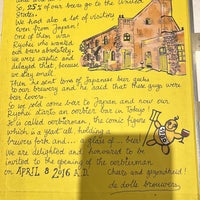 So, 25% of our beers go to the United
States.
We had also a lot of visitors
even from Japan!
One of them was
Ryohei who wanted
our beers absolutely.
we were sceptic and
delayed that because
we stay small.
Then he sent tons of Japanese beer geeks
to our brewery and he said that they guys were
beer lovers...
So we sold some beer to Japan and now our
Ryohei starts an oerbier bar in Tokyo.
It is called oerbierman, the comic figure
which is a goat all, holding a
brewers fork and.... a glass of ... beer!
We are delighted and honoured to be
invited to the opening of the oerbierman
on APRIL 8 2016 A.D.
Cheers and gezondheid!
de dolle brouwers,